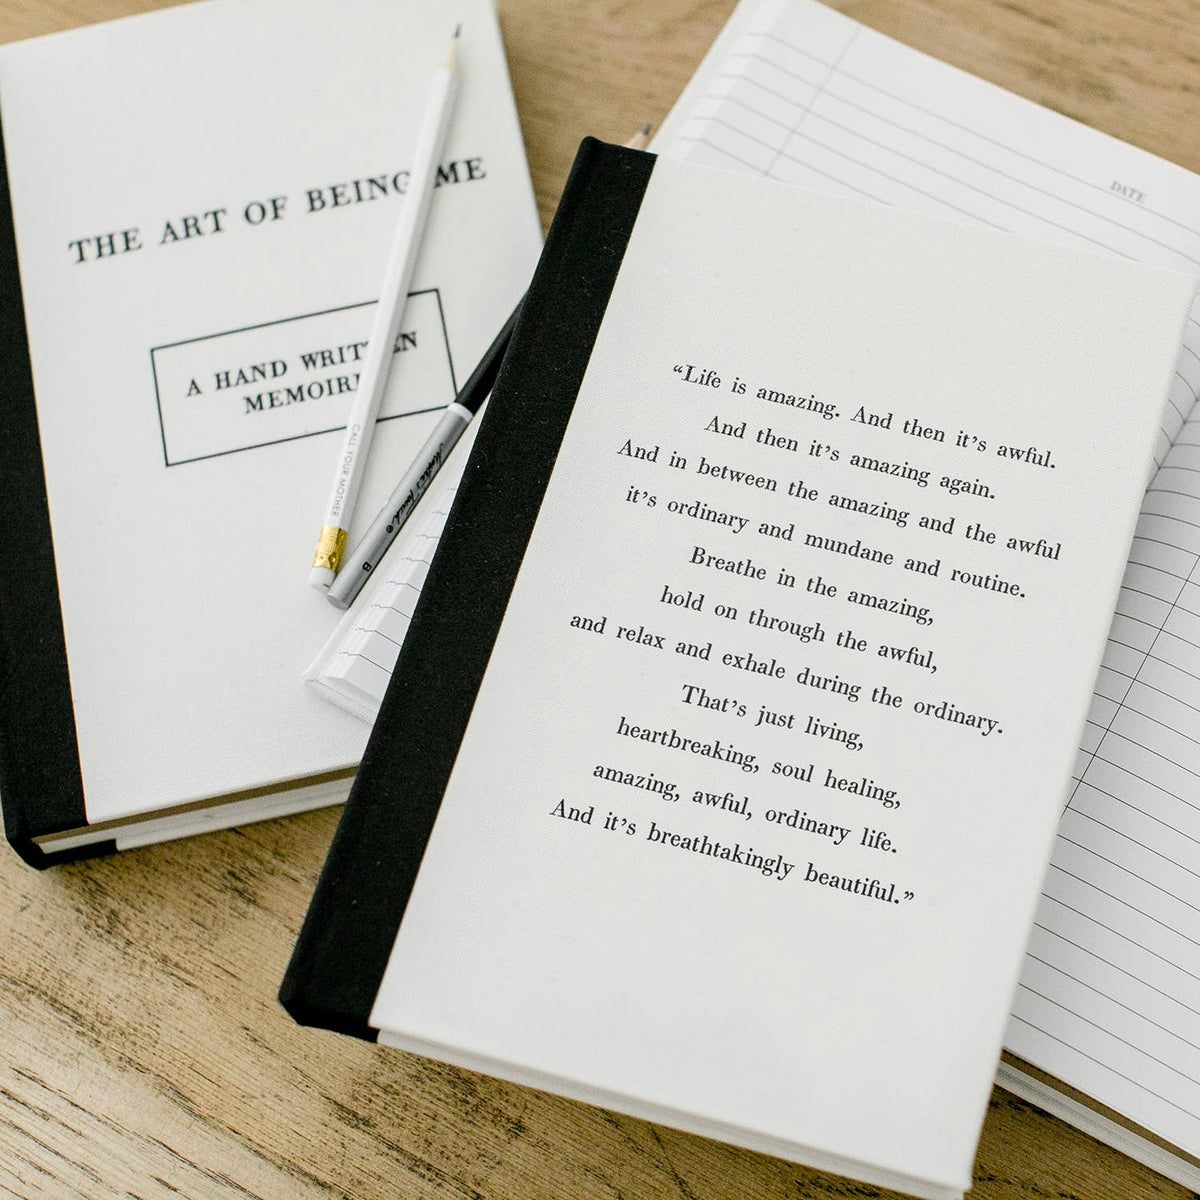 THE ART OF BEING ME
A HAND WRITTEN
MEMOIR
CALL YOUR MOTHER
B
DATE
“Life is amazing. And then it’s awful.
And then it’s amazing again.
And in between the amazing and the awful
it’s ordinary and mundane and routine.
Breathe in the amazing,
hold on through the awful,
and relax and exhale during the ordinary.
That’s just living,
heartbreaking, soul healing,
amazing, awful, ordinary life.
And it’s breathtakingly beautiful.”